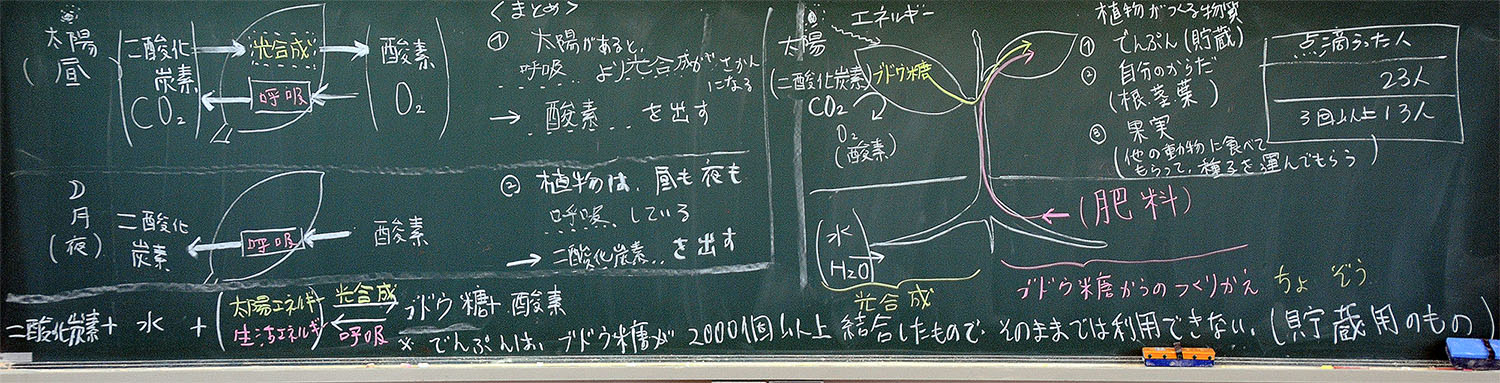 太陽
(昼)
二酸化
炭素
CO₂
光合成
呼吸
酸素
O₂
D
月
(夜)
二酸化
炭素
呼吸
酸素
<まとめ>
① 太陽があると、
呼吸 より光合成がさかん
になる
→ 酸素 を出す
② 植物は、昼も夜も
呼吸 している
→ 二酸化炭素 を出す
二酸化炭素 + 水 + (太陽エネルギー 生活エネルギー) 光合成 呼吸 ブドウ糖 + 酸素
※ でんぷんは、ブドウ糖が 2000個以上 結合したもので、そのままでは利用できない。(貯蔵用のもの)
ちょ ぞう
太陽
エネルギー
(二酸化炭素) ブドウ糖
CO₂
O₂
(酸素)
水
H₂O
光合成
(肥料)
ブドウ糖からのつくりかえ
植物がつくる物質
① でんぷん(貯蔵)
② 自分のからだ
(根.茎.葉)
③ 果実
(他の動物に食べて
もらって、種子を運んでもらう)
点滴うった人
23人
3回以上13人